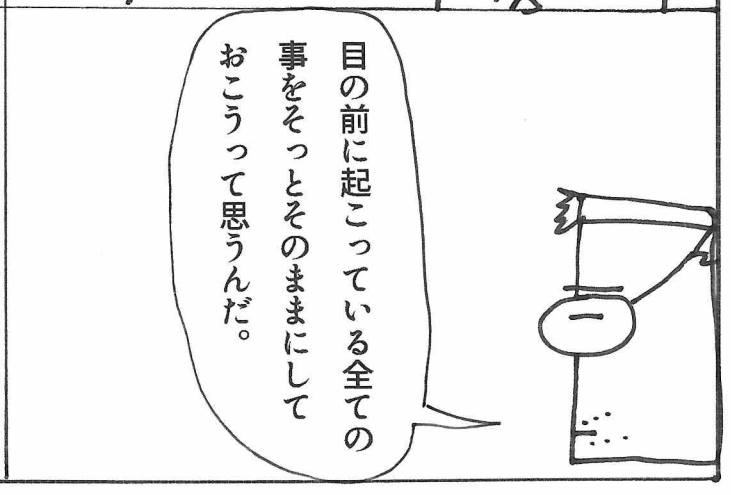 目の前に起こっている全ての
事をそっとそのままにして
おこうって思うんだ。